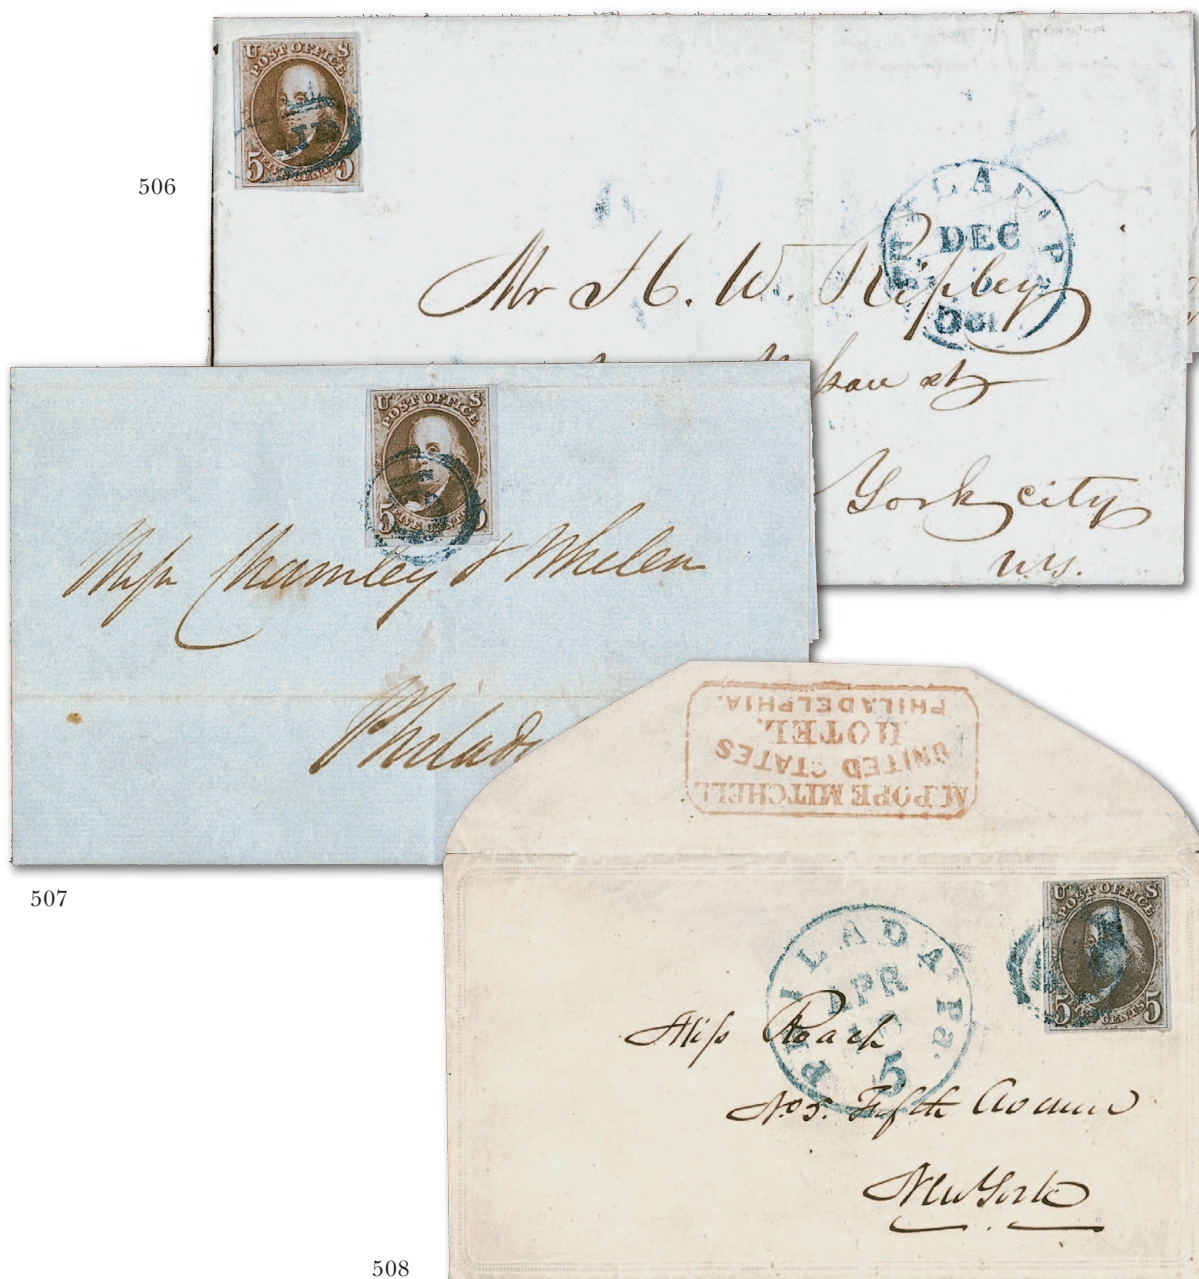 506
U S
POST OFFICE
5 FIVE CENTS 5
PHILADA Pa
DEC
Mr H. W. Ripley
st
York city
N.Y.
507
U S
POST OFFICE
5 FIVE CENTS
& Whelen
Philad
508
M. POPE MITCHELL
UNITED STATES
HOTEL.
PHILADELPHIA.
U S
POST OFFICE
5 FIVE CENTS 5
PHILADA Pa.
APR
5
Miss Roach
No 5. Fifth Avenue
New York